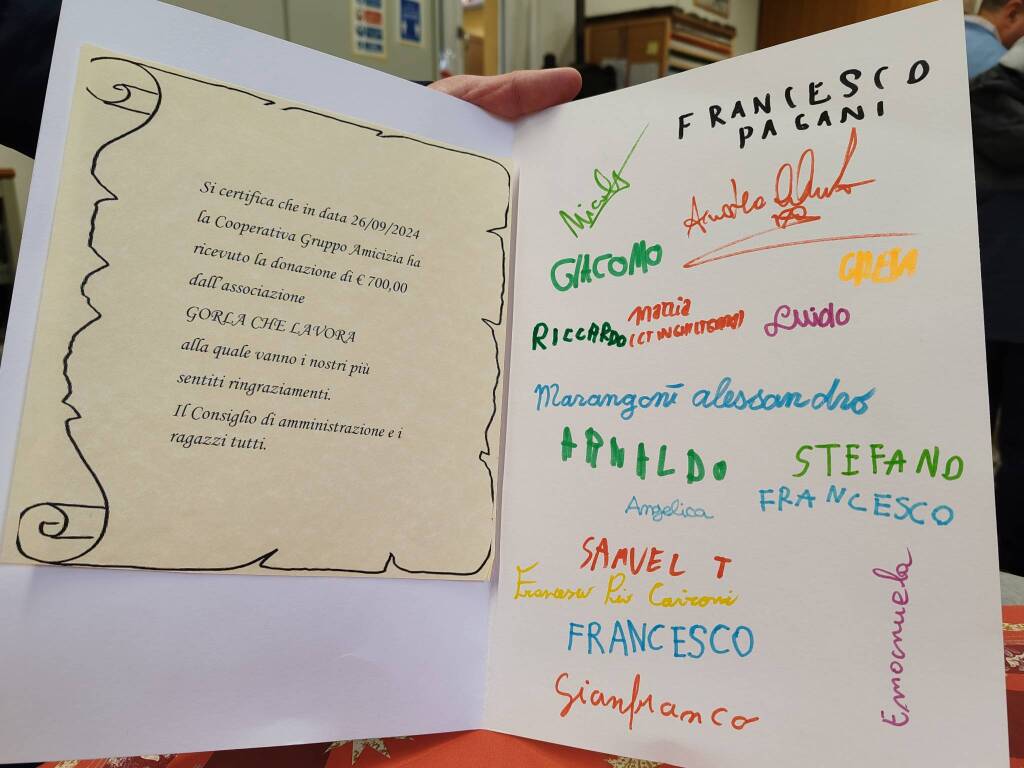 Si certifica che in data 26/09/2024
la Cooperativa Gruppo Amicizia ha
ricevuto la donazione di € 700,00
dall'associazione
GORLA CHE LAVORA
alla quale vanno i nostri più
sentiti ringraziamenti.
Il Consiglio di amministrazione e i
ragazzi tutti.
FRANCESCO
PAGANI
GIACOMO
RICCARDO
maria
Guido
Marangoni alessandro
ARNALDO
STEFANO
Angelica
FRANCESCO
SAMUEL T
Caironi
FRANCESCO
Gianfranco